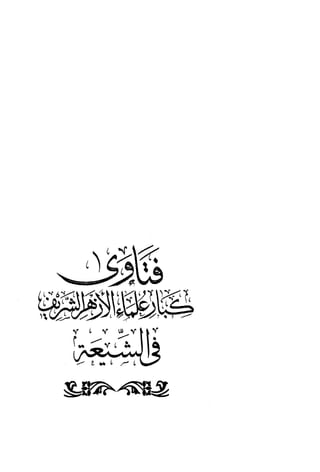 فتاوى
كبار علماء الأزهر الشريف
في الشيعة